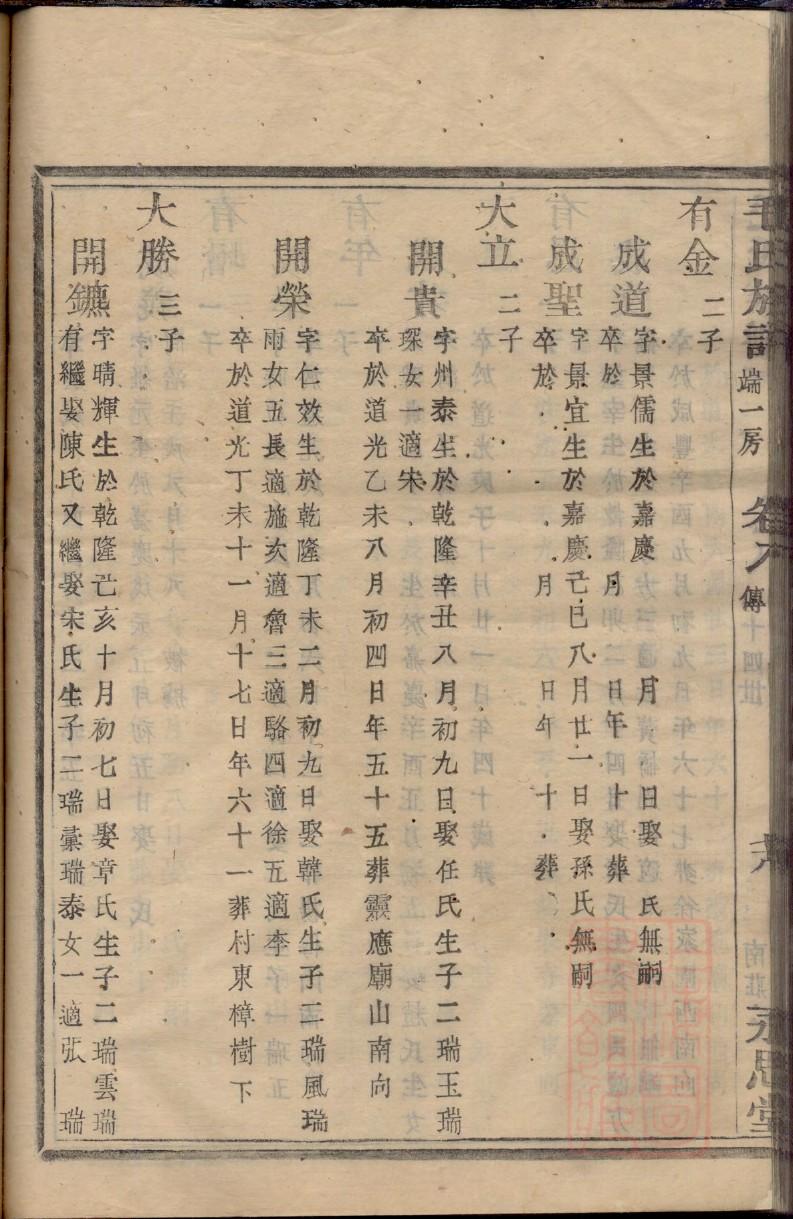 毛氏族譜 端一房 卷八 傳十四世 永思堂
有金 二子
成道 字景儒生於嘉慶 月 日娶 氏無嗣
卒於 月 日年 十 葬
成聖 字景宜生於嘉慶己巳八月廿一日娶孫氏無嗣
卒於 月 日年 十 葬
大立 二子
開貴 字州泰生於乾隆辛丑八月初九日娶任氏生子二瑞玉瑞
琛女一適宋
卒於道光乙未八月初四日年五十五葬靈應廟山南向
開榮 字仁效生於乾隆丁未二月初九日娶韓氏生子二瑞風瑞
雨女五長適施次適魯三適駱四適徐五適李
卒於道光丁未十一月十七日年六十一葬村東樟樹下
大勝 三子
開鑣 字晴輝生於乾隆己亥十月初七日娶章氏生子二瑞雲瑞
有繼娶陳氏又繼娶宋氏生子二瑞彙瑞泰女一適張 瑞